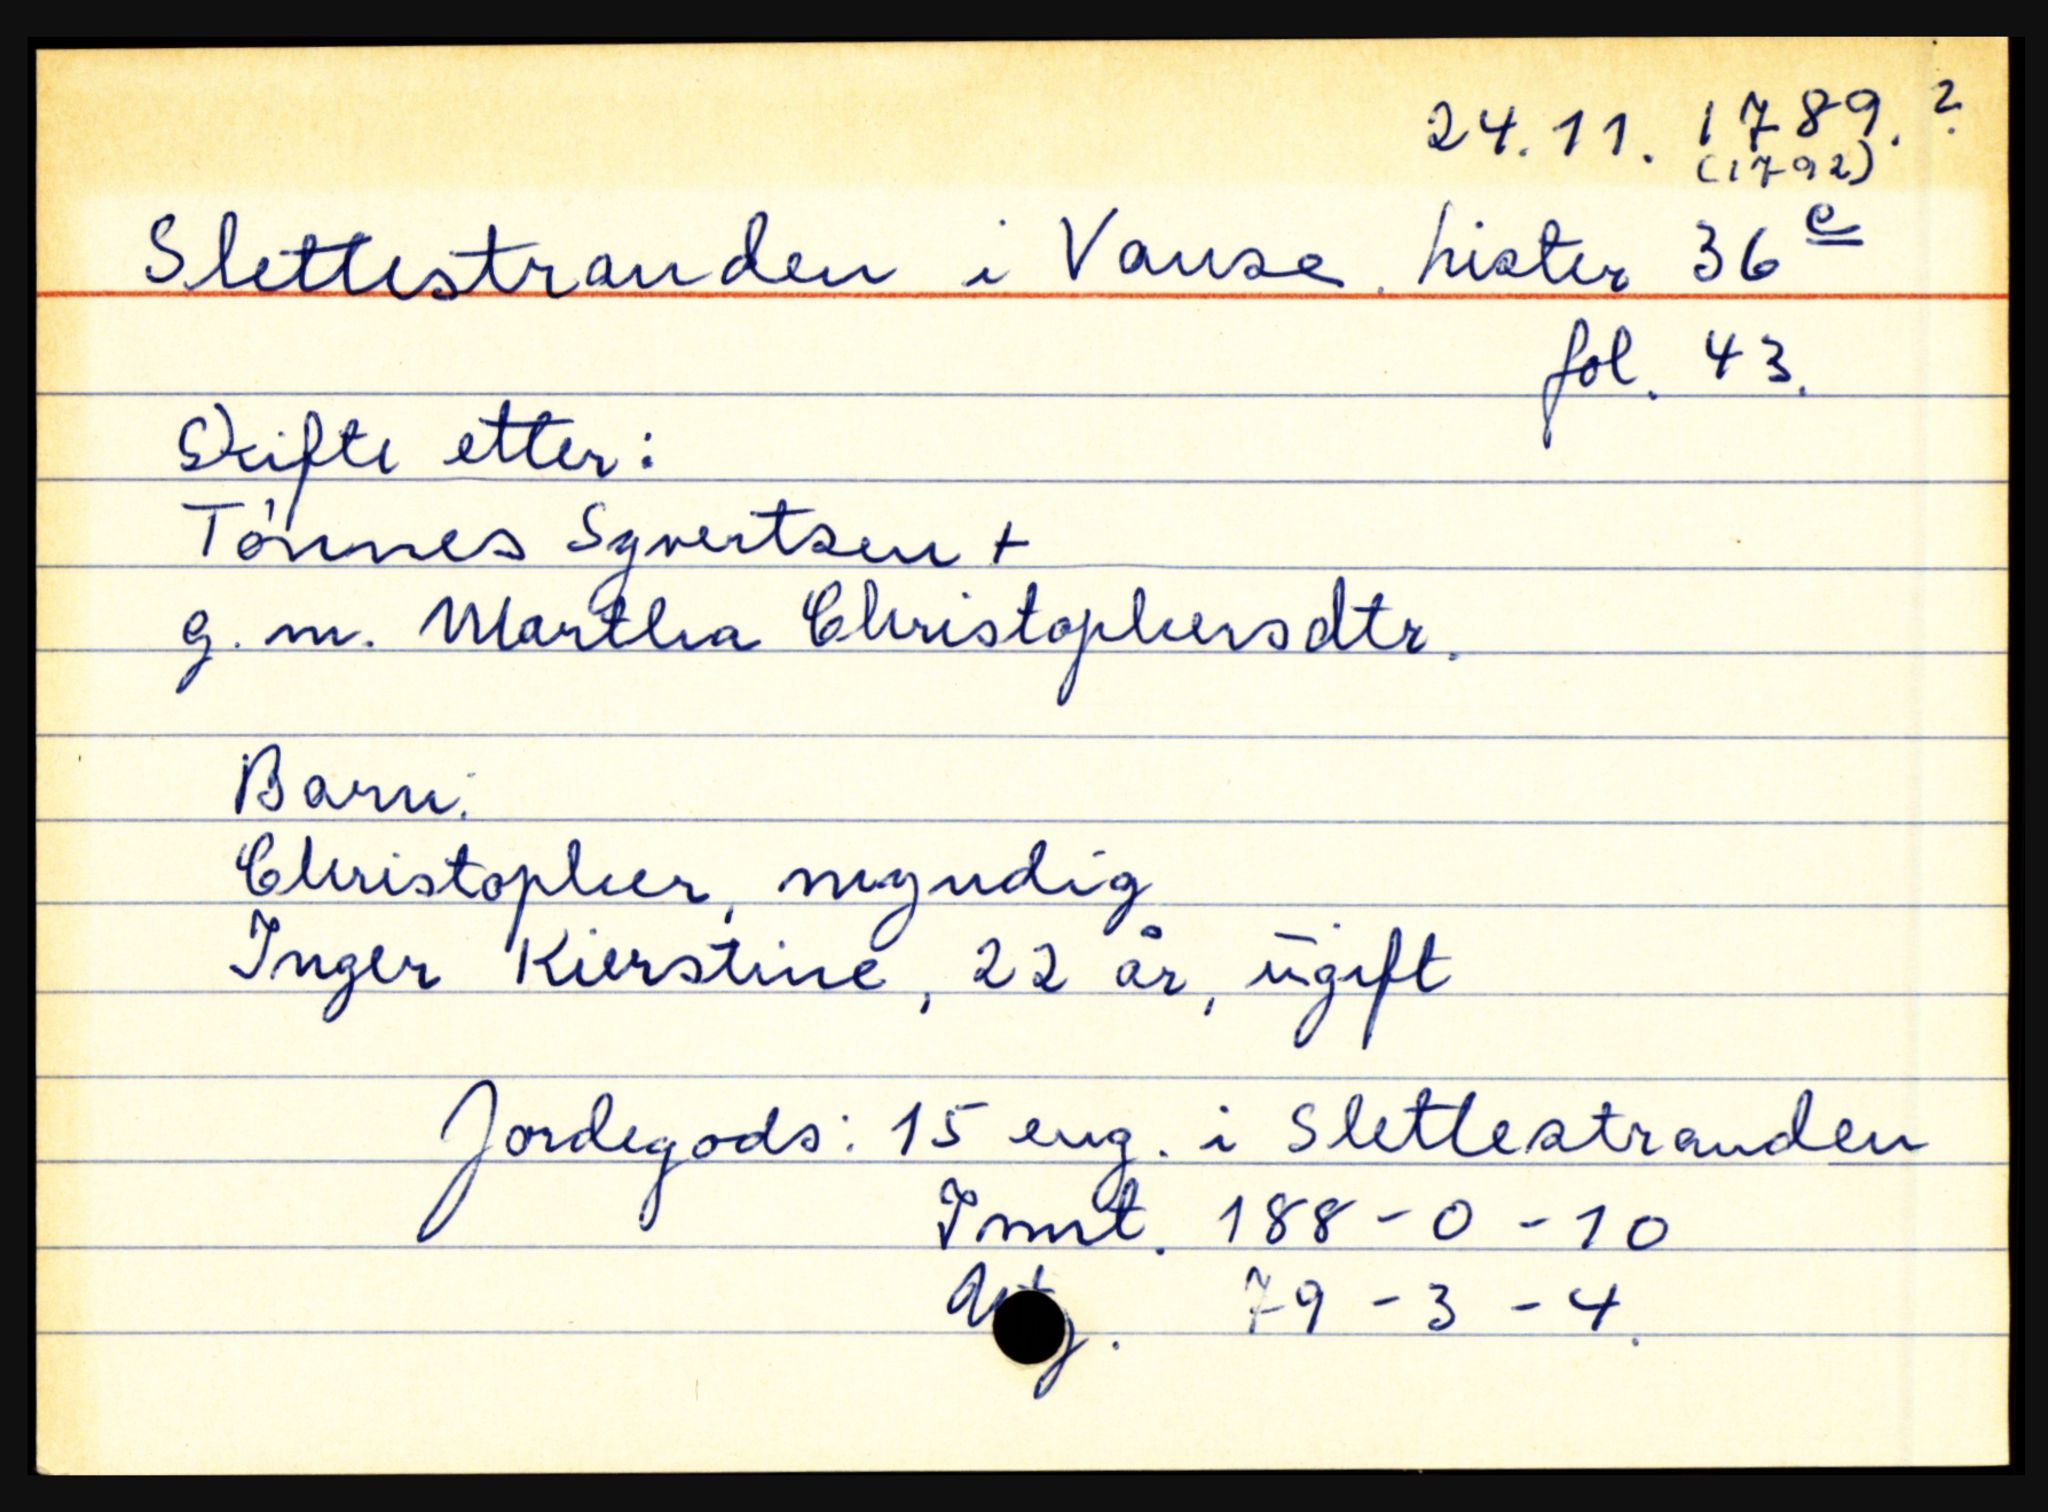 24.11. 1789. ?
(1792)
Slettestranden i Vanse. Lister 36 e
fol. 43.
Skifte etter:
Tønnes Syvertsen +
g. m. Martha Christophersdtr.
Barn:
Christopher, myndig
Inger Kierstine, 22 år, ugift
Jordegods: 15 eng. i Slettestranden
Innt. 188 - 0 - 10
Utg. 79 - 3 - 4.